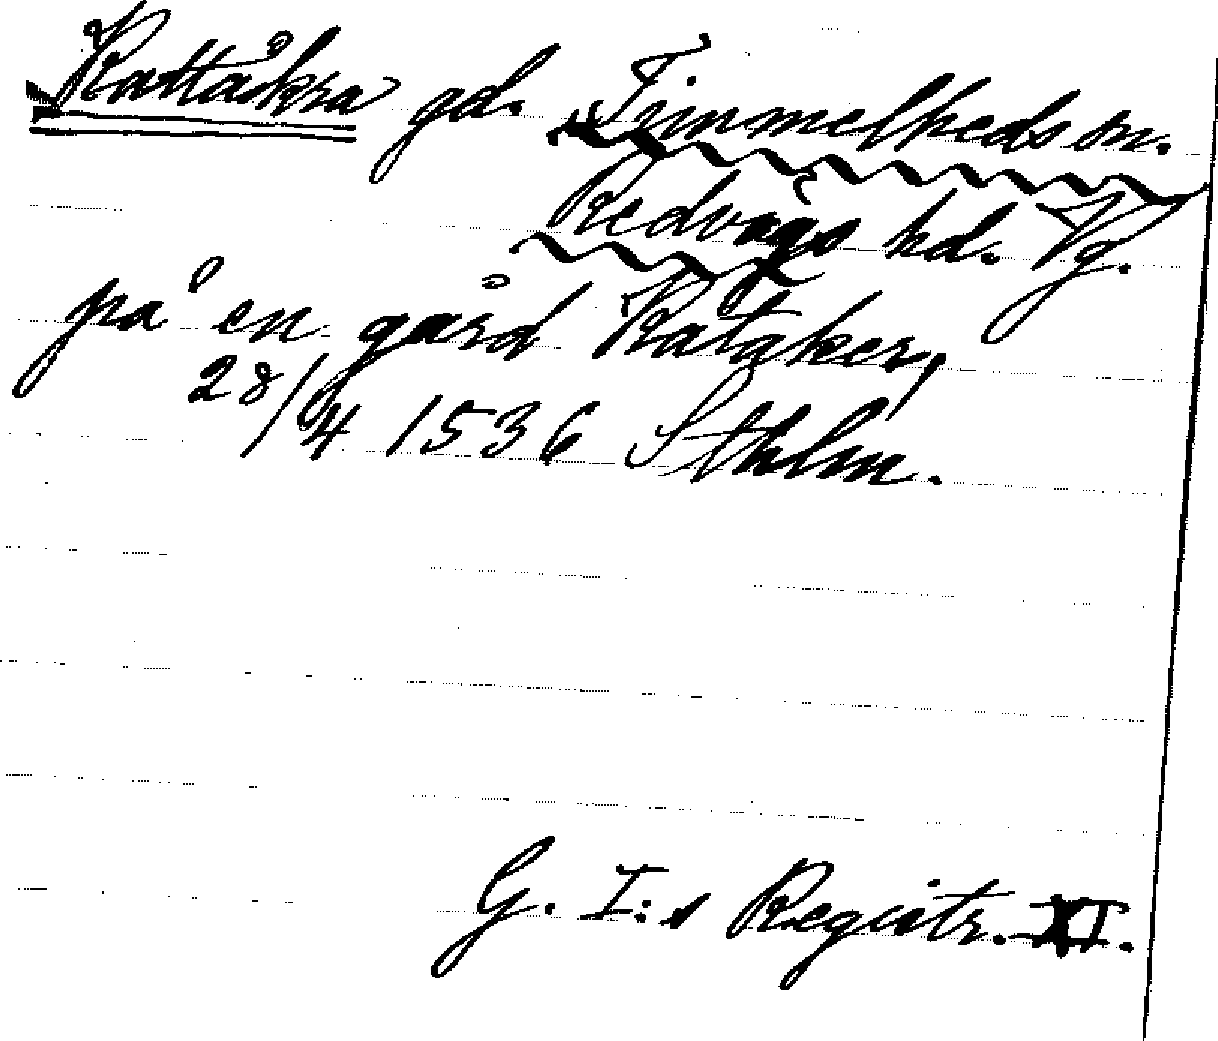 Kattåkra gd. Timmelheds sn.
Redvägs hd. Vg.
på en gård Kataker,
28/4 1536 Sthlm.
G. I:s Registr. XI.